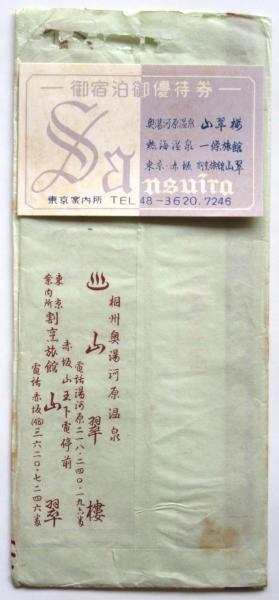 御宿泊御優待券
Sansuiro
奥湯河原温泉 山翠楼
熱海温泉 一條旅館
東京・赤坂 割烹旅館山翠
東京案内所 TEL 48-3620.7246
相州奥湯河原温泉
♨山翠樓
電話湯河原二一八・二四〇・一九六番
赤坂山王下電停前
東京案内所 割烹旅館 山翠
電話赤坂(48)三六二〇・七二四六番